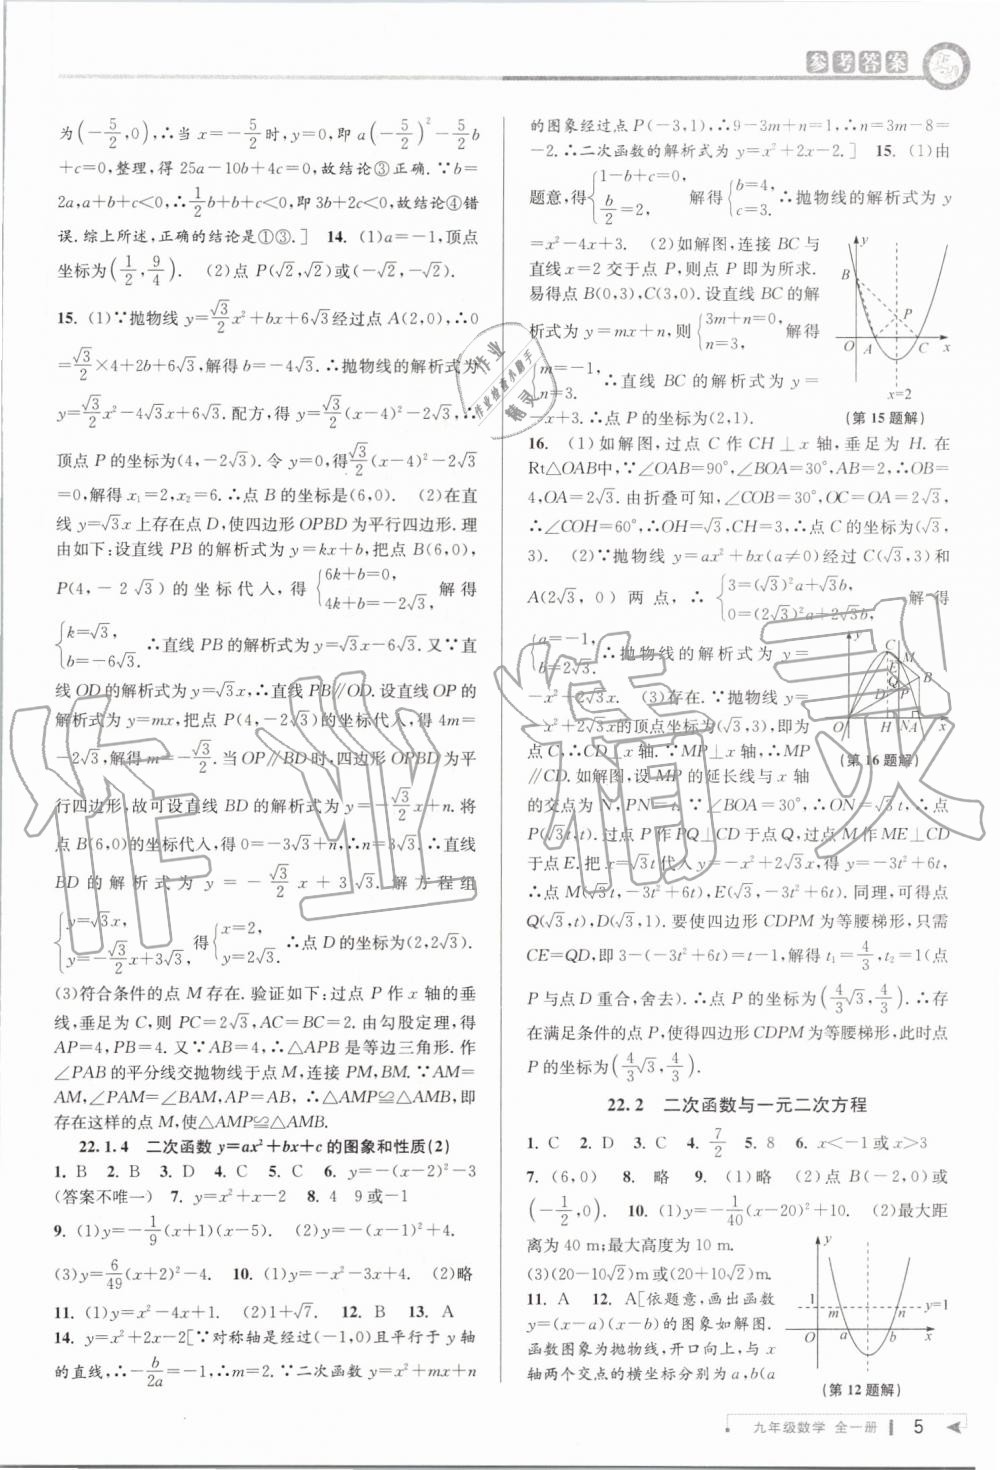 参考答案
为(-5/2,0),∴当 x=-5/2时,y=0,即 a(-5/2)²-5/2b
+c=0,整理,得 25a-10b+4c=0,故结论③正确.∵b=
2a,a+b+c<0,∴1/2b+b+c<0,即 3b+2c<0,故结论④错
误.综上所述,正确的结论是①③.] 14. (1)a=-1,顶点
坐标为(1/2,9/4). (2)点 P(√2,√2)或(-√2,-√2).
15. (1)∵抛物线 y=√3/2x²+bx+6√3经过点 A(2,0),∴0
=√3/2×4+2b+6√3,解得 b=-4√3.∴抛物线的解析式为
y=√3/2x²-4√3x+6√3.配方,得 y=√3/2(x-4)²-2√3,∴
顶点 P 的坐标为(4,-2√3).令 y=0,得√3/2(x-4)²-2√3
=0,解得 x₁=2,x₂=6.∴点 B 的坐标是(6,0). (2)在直
线 y=√3x 上存在点 D,使四边形 OPBD 为平行四边形.理
由如下:设直线 PB 的解析式为 y=kx+b,把点 B(6,0),
P(4,-2√3)的坐标代入,得 {6k+b=0, 4k+b=-2√3, 解得
{k=√3, b=-6√3. ∴直线 PB 的解析式为 y=√3x-6√3.又∵直
线 OD 的解析式为 y=√3x,∴直线 PB∥OD.设直线 OP 的
解析式为 y=mx,把点 P(4,-2√3)的坐标代入,得 4m=
-2√3,解得 m=-√3/2.当 OP∥BD 时,四边形 OPBD 为平
行四边形,故可设直线 BD 的解析式为 y=-√3/2x+n.将
点 B(6,0)的坐标代入,得 0=-3√3+n,∴n=3√3.∴直线
BD 的解析式为 y=-√3/2x+3√3.解方程组
{y=√3x, y=-√3/2x+3√3, 得{x=2, y=2√3. ∴点 D 的坐标为(2,2√3).
(3)符合条件的点 M 存在.验证如下:过点 P 作 x 轴的垂
线,垂足为 C,则 PC=2√3,AC=BC=2.由勾股定理,得
AP=4,PB=4.又∵AB=4,∴△APB 是等边三角形.作
∠PAB 的平分线交抛物线于点 M,连接 PM,BM.∵AM=
AM,∠PAM=∠BAM,AP=AB, ∴△AMP≌△AMB,即
存在这样的点 M,使△AMP≌△AMB.
22.1.4 二次函数 y=ax²+bx+c 的图象和性质(2)
1. B 2. B 3. D 4. C 5. C 6. y=-(x-2)²-3
(答案不唯一) 7. y=x²+x-2 8. 4 9或-1
9. (1)y=-1/9(x+1)(x-5). (2)y=-(x-1)²+4.
(3)y=6/49(x+2)²-4. 10. (1)y=-x²-3x+4. (2)略
11. (1)y=x²-4x+1. (2)1+√7. 12. B 13. A
14. y=x²+2x-2[∵对称轴是经过(-1,0)且平行于 y 轴
的直线,∴-b/2a=-1,∴m=2.∵二次函数 y=x²+mx+n
的图象经过点 P(-3,1),∴9-3m+n=1,∴n=3m-8=
-2.∴二次函数的解析式为 y=x²+2x-2.] 15. (1)由
题意,得{1-b+c=0, b/2=2, 解得{b=4, c=3. ∴抛物线的解析式为 y
=x²-4x+3. (2)如解图,连接 BC 与
直线 x=2 交于点 P,则点 P 即为所求.
易得点 B(0,3),C(3,0).设直线 BC 的解
析式为 y=mx+n,则{3m+n=0, n=3, 解得
{m=-1, n=3. ∴直线 BC 的解析式为 y=
-x+3.∴点 P 的坐标为(2,1).
y
B
P
O A C x
x=2
(第 15 题解)
16. (1)如解图,过点 C 作 CH⊥x 轴,垂足为 H.在
Rt△OAB中,∵∠OAB=90°,∠BOA=30°,AB=2,∴OB=
4,OA=2√3.由折叠可知,∠COB=30°,OC=OA=2√3,
∴∠COH=60°,∴OH=√3,CH=3,∴点 C 的坐标为(√3,
3). (2)∵抛物线 y=ax²+bx(a≠0)经过 C(√3,3)和
A(2√3,0)两点,∴{3=(√3)²a+√3b, 0=(2√3)²a+2√3b, 解得
{a=-1, b=2√3. ∴抛物线的解析式为 y=
-x²+2√3x. (3)存在.∵抛物线 y=
-x²+2√3x的顶点坐标为(√3,3),即为
点 C.∴CD⊥x 轴.∵MP⊥x 轴,∴MP
∥CD.如解图,设 MP 的延长线与 x 轴
的交点为 N,PN=t.∵∠BOA=30°,∴ON=√3t,∴点
P(√3t,t).过点 P 作 PQ⊥CD 于点 Q,过点 M 作 ME⊥CD
于点 E.把 x=√3t代入 y=-x²+2√3x,得 y=-3t²+6t,
∴点 M(√3t,-3t²+6t),E(√3,-3t²+6t).同理,可得点
Q(√3,t),D(√3,1).要使四边形 CDPM 为等腰梯形,只需
CE=QD,即 3-(-3t²+6t)=t-1,解得 t₁=4/3,t₂=1(点
P 与点 D 重合,舍去).∴点 P 的坐标为(4/3√3,4/3).∴存
在满足条件的点 P,使得四边形 CDPM 为等腰梯形,此时点
P 的坐标为(4/3√3,4/3).
y
C
E M
Q B
D P
O H N A x
(第 16 题解)
22.2 二次函数与一元二次方程
1. C 2. D 3. C 4. 7/2 5. 8 6. x<-1 或 x>3
7. (6,0) 8. 略 9. (1)略 (2)点 B(-2,0)或
(-1/2,0). 10. (1)y=-1/40(x-20)²+10. (2)最大距
离为 40 m;最大高度为 10 m.
(3)(20-10√2)m或(20+10√2)m.
11. A 12. A[依题意,画出函数
y=(x-a)(x-b)的图象如解图.
函数图象为抛物线,开口向上,与 x
轴两个交点的横坐标分别为 a,b(a
y
1 m n y=1
O a b x
(第 12 题解)
九年级数学 全一册 5
作业
作业检查小助手
精灵
作业精灵